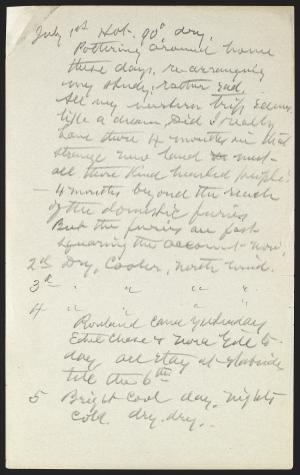 July 1st Hot. 90°, dry,
Pottering around home
these days, re-arranging
my study, rather sad.
All my western trip seems
like a dream, did I really
have those 4 months in that
strange new land & meet
all those kind hearted people?
— 4 months beyond the reach
of the domestic furies
But the furies are fast
squaring the account now.
2d Dry, Cooler, north wind.
3d " " " "
4 " " " "
Rowland came yesterday
Ethel Chase & Nora Gill to-
day all stay at Slabsides
till the 6th
5 Bright cool day, nights
cold. dry. dry..